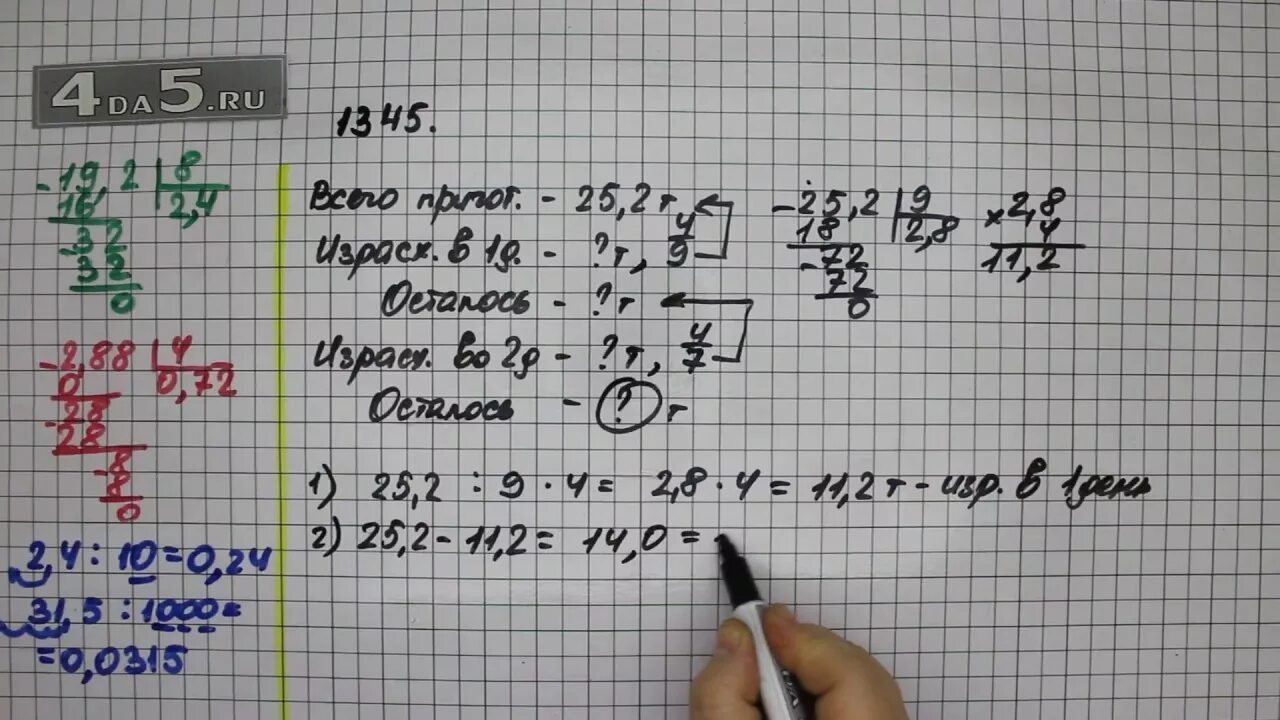 4DA5.RU
1345.
-19,2 | 8
16 2,4
-32
32
0
-2,88 | 4
0 0,72
-28
28
-8
8
0
2,4 : 10 = 0,24
31,5 : 1000 =
= 0,0315
Всего пригот. - 25,2 т
Израсх. в 1д. - ?т, 4/9
Осталось - ?т
Израсх. во 2д - ?т, 4/7
Осталось - ? т
-25,2 | 9
18 2,8
-72
72
0
× 2,8
4
11,2
1) 25,2 : 9 · 4 = 2,8 · 4 = 11,2 т - изр. в 1 день
2) 25,2 - 11,2 = 14,0 =